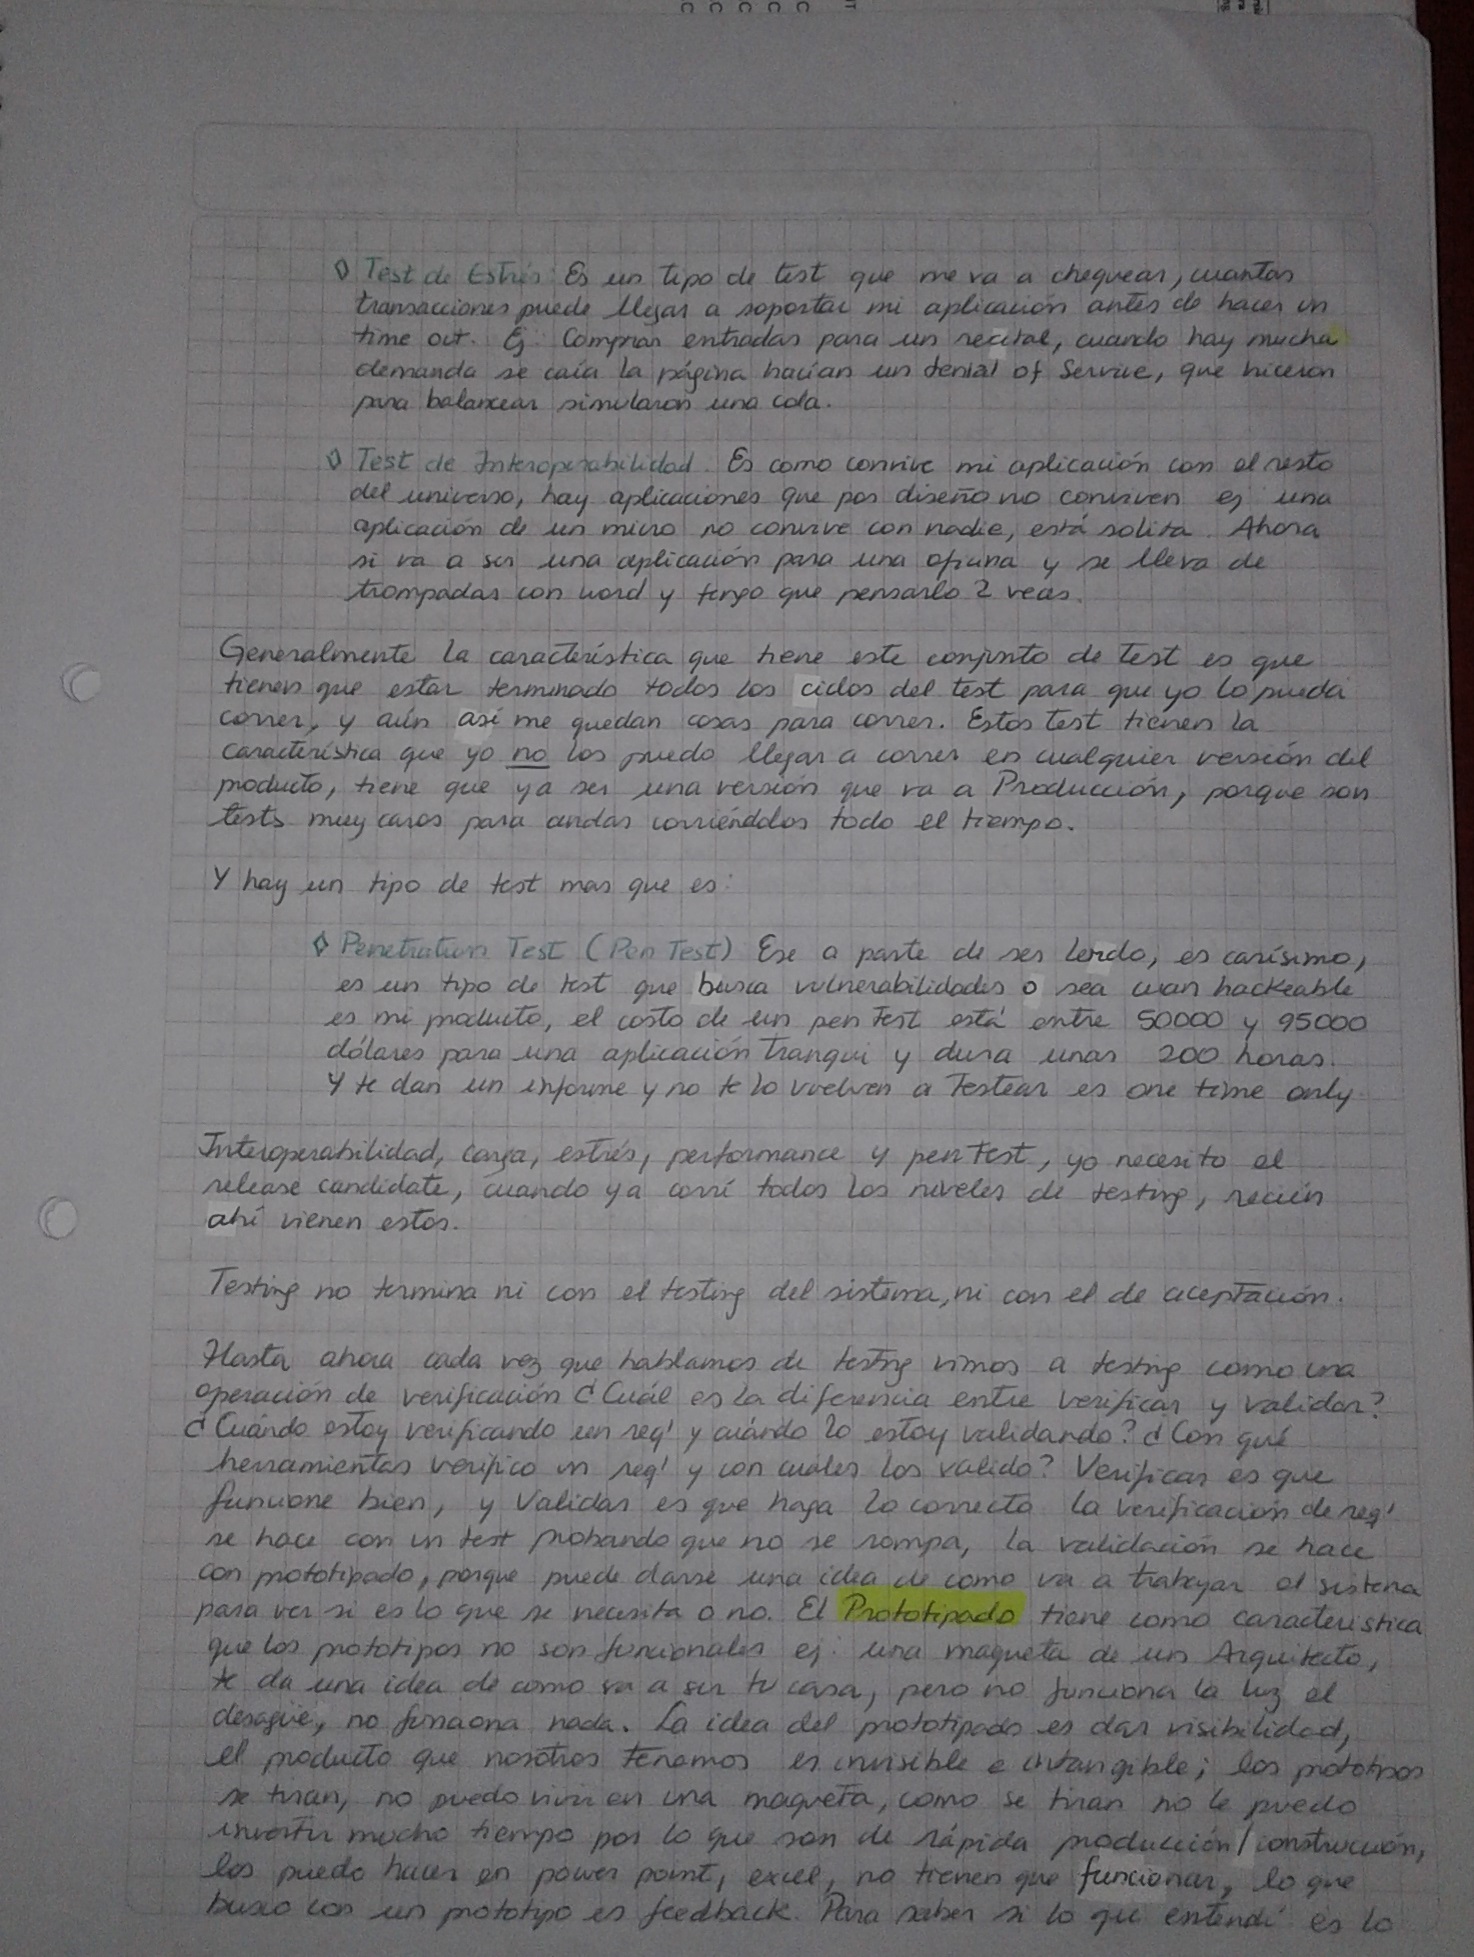 ◊ Test de Estrés: Es un tipo de test que me va a chequear, cuantas
transacciones puede llegar a soportar mi aplicación antes de hacer un
time out. Ej: Comprar entradas para un recital, cuando hay mucha
demanda se caía la página hacían un denial of Service, que hicieron
para balancear simularon una cola.
◊ Test de Interoperabilidad. Es como convive mi aplicación con el resto
del universo, hay aplicaciones que por diseño no conviven ej una
aplicación de un micro no convive con nadie, está solita. Ahora
si va a ser una aplicación para una oficina y se lleva de
trompadas con word y tengo que pensarlo 2 veces.
Generalmente la característica que tiene este conjunto de test es que
tienen que estar terminado todos los ciclos del test para que yo lo pueda
correr, y aún así me quedan cosas para correr. Estos test tienen la
característica que yo no los puedo llegar a correr en cualquier versión del
producto, tiene que ya ser una versión que va a Producción, porque son
tests muy caros para andar corriéndolos todo el tiempo.
Y hay un tipo de test mas que es:
◊ Penetration Test (Pen Test) Ese a parte de ser lerdo, es carísimo,
es un tipo de test que busca vulnerabilidades o sea cuan hackeable
es mi producto, el costo de un pen test está entre 50000 y 95000
dólares para una aplicación tranqui y dura unas 200 horas.
Y te dan un informe y no te lo vuelven a Testear es one time only.
Interoperabilidad, carga, estrés, performance y pen test, yo necesito el
release candidate, cuando ya corrí todos los niveles de testing, recién
ahí vienen estos.
Testing no termina ni con el testing del sistema, ni con el de aceptación.
Hasta ahora cada vez que hablamos de testing vimos a testing como una
operación de verificación ¿Cuál es la diferencia entre verificar y validar?
¿Cuándo estoy verificando un req' y cuándo lo estoy validando? ¿Con qué
herramientas verifico un req' y con cuales los valido? Verificar es que
funcione bien, y Validar es que haga lo correcto la verificación de req'
se hace con un test probando que no se rompa, la validación se hace
con prototipado, porque puede darse una idea de como va a trabajar el sistema
para ver si es lo que se necesita o no. El Prototipado tiene como característica
que los prototipos no son funcionales ej: una maqueta de un Arquitecto,
te da una idea de como va a ser tu casa, pero no funciona la luz el
desagüe, no funciona nada. La idea del prototipado es dar visibilidad,
el producto que nosotros tenemos es invisible e intangible; los prototipos
se tiran, no puedo vivir en una maqueta, como se tiran no le puedo
invertir mucho tiempo por lo que son de rápida producción/construcción,
los puedo hacer en power point, excel, no tienen que funcionar, lo que
busco con un prototipo es feedback. Para saber si lo que entendí es lo